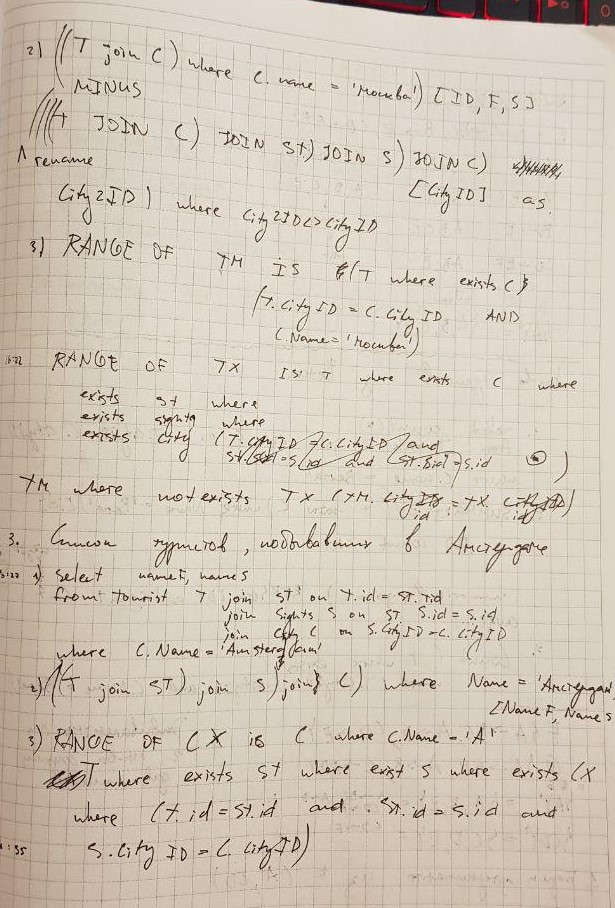 2) (((T join C) where C. name = 'Москва') [ID, F, S]
MINUS
((((T JOIN C) JOIN ST) JOIN S) JOIN C)
rename [City ID] as
City2ID) where City2ID<>CityID
3) RANGE OF TM IS (T where exists C
(T.City ID = C. City ID AND
C.Name = 'Москва')
RANGE OF TX IS T where exists C where
exists st where
exists sights where
exists city (T.City ID = C.City ID and
= S.id and ST.Sid = S.id)
TM where not exists TX (TM. id = TX. id)
3. Список туристов, побывавших в Амстердаме
1) select nameF, nameS
from tourist T join ST on T.id = ST.Tid
join Sights S on ST S.id = S.id
join City C on S.City ID = C. City ID
where C. Name = 'Amsterdam'
2) (((T join ST) join S) join C) where Name = 'Амстердам'
[Name F, Name S
3) RANGE OF CX is C where C.Name = 'A'
T where exists ST where exist S where exists CX
where (T.id = ST.id and ST.id = S.id and
S.City ID = C. City ID)